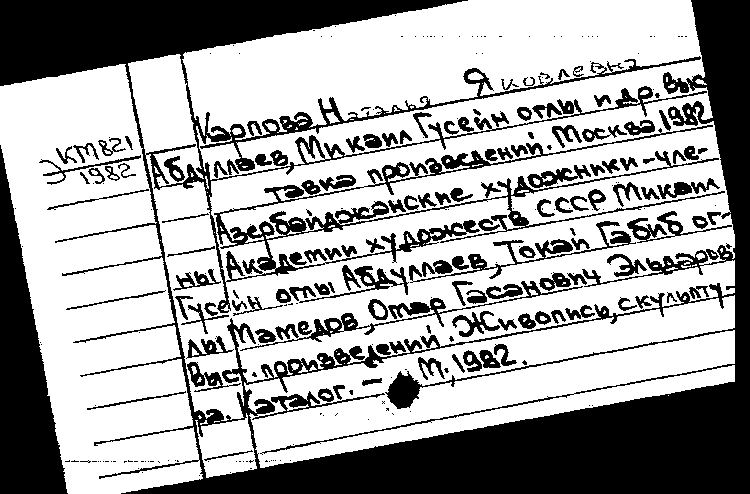 Карпова, Наталья Яковлевна
ЭКМ821
1982
Абдуллаев, Микаил Гусейн оглы и др. Выс-
тавка произведений. Москва. 1982
Азербайджанские художники-чле-
ны Академии художеств СССР Микаил
Гусейн оглы Абдуллаев, Токай Габиб ог-
лы Мамедов, Омар Гасанович Эльдаров.
Выст. произведений. Живопись, скульпту-
ра. Каталог. – М., 1982.